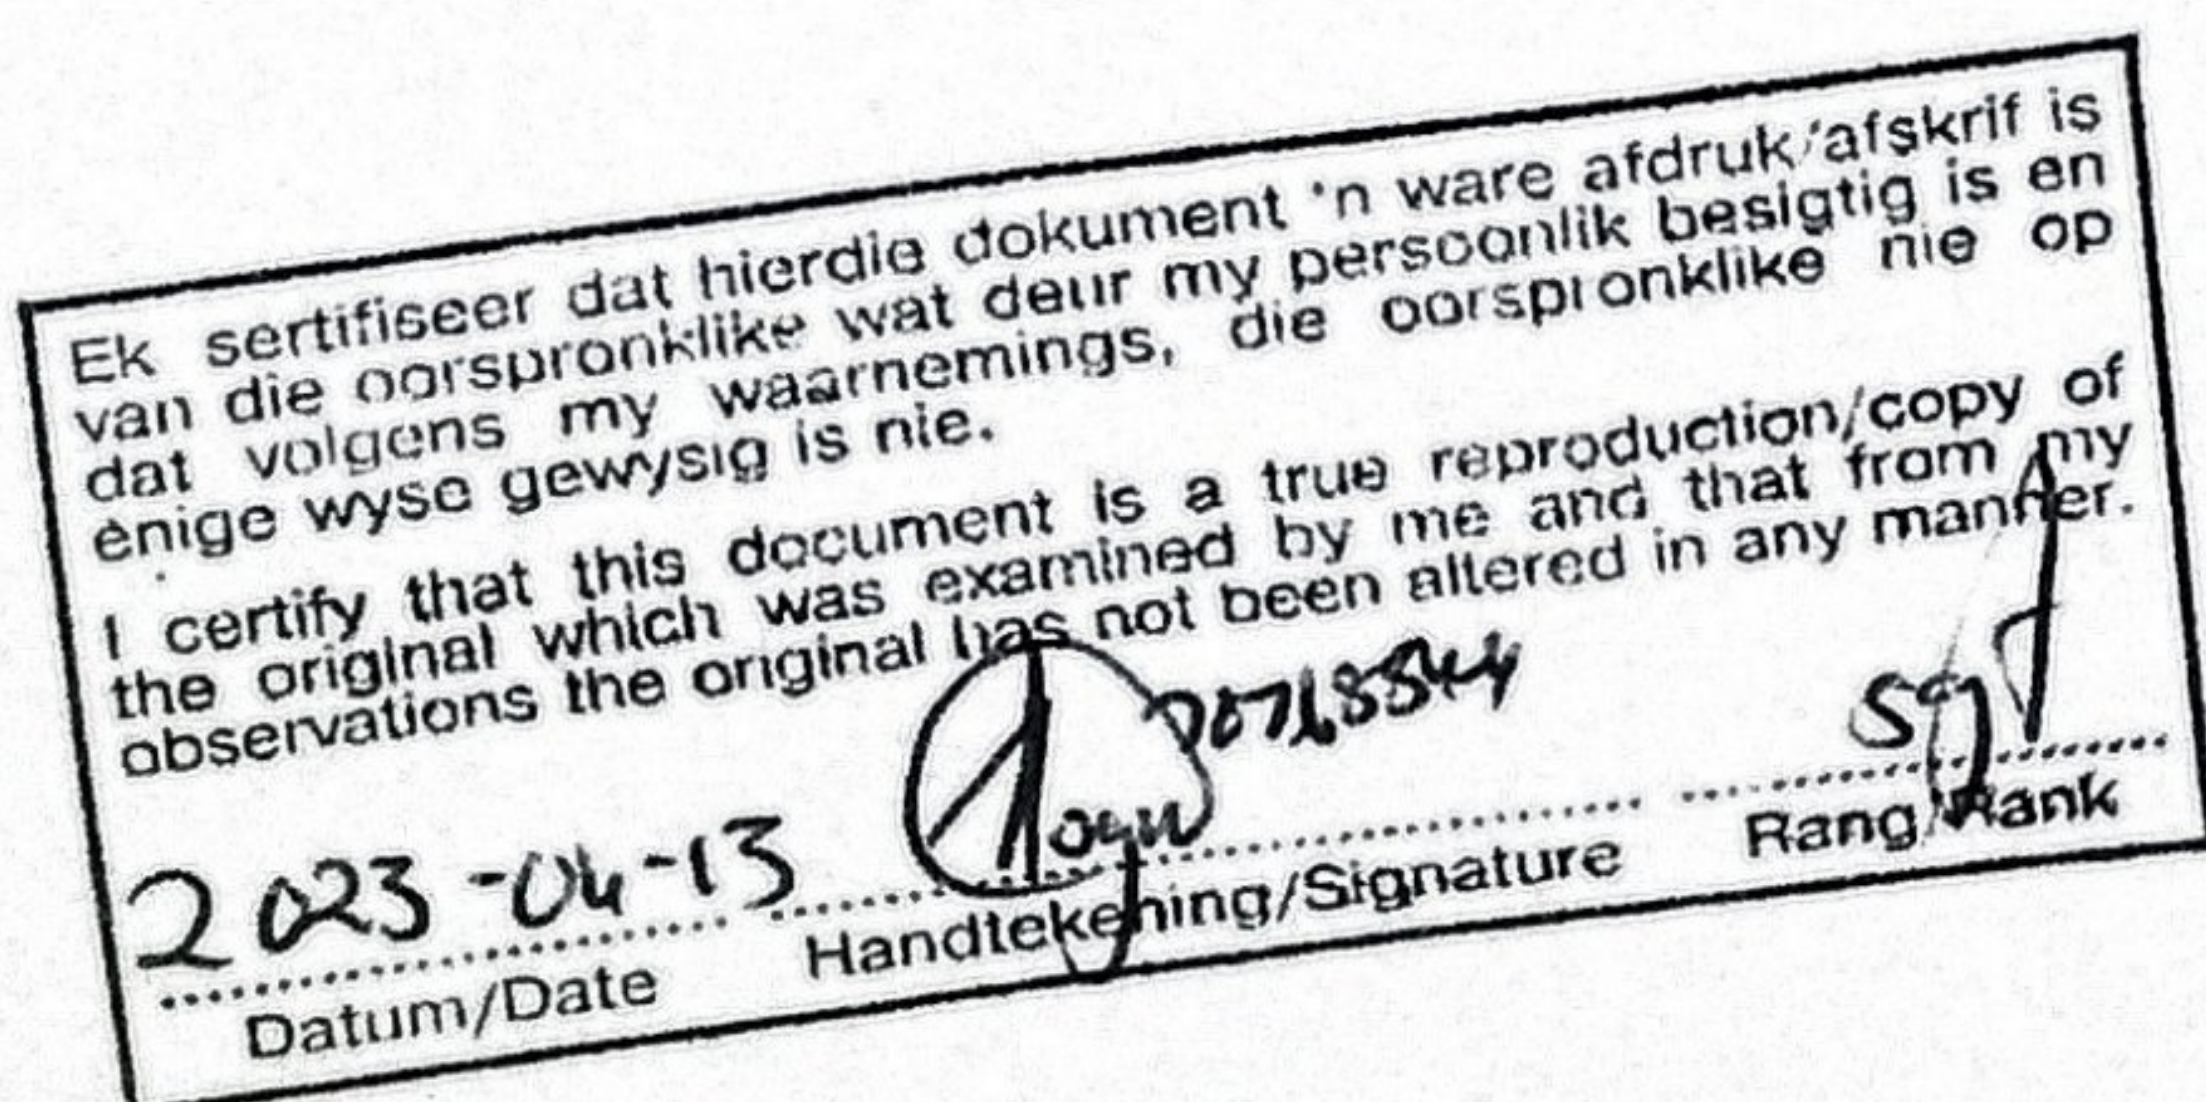 Ek sertifiseer dat hierdie dokument 'n ware afdruk/afskrif is
van die oorspronklike wat deur my persoonlik besigtig is en
dat volgens my waarnemings, die oorspronklike nie op
enige wyse gewysig is nie.
I certify that this document is a true reproduction/copy of
the original which was examined by me and that from my
observations the original has not been altered in any manner.
2023-04-13 Sgt
Datum/Date Handtekening/Signature Rang/Rank